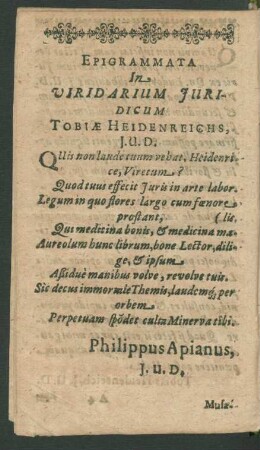 EPIGRAMMATA
In
VIRIDARIUM JURI-
DICUM
TOBIÆ HEIDENREICHS,
J. U. D.
QUis non laude tuum vehat, Heidenri-
ce, Viretum?
Quod tuus effecit Juris in arte labor.
Legum in quo flores largo cum fœnore
prostant, (lis.
Qui medicina bonis, & medicina ma-
Aureolum hunc librum, bone Lector, dili-
ge, & ipsum
Assiduè manibus volve, revolve tuis.
Sic decus immortale Themis, laudemq́; per
orbem
Perpetuam spōdet culta Minerva tibi.
Philippus Apianus,
J. U. D.
Musæ